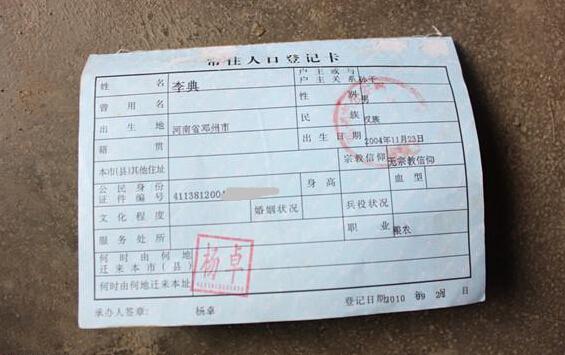 常住人口登记卡
姓名 李典 户主或与户主关系 孙子
曾用名 性别 男
民族 汉族
出生地 河南省邓州市 出生日期 2004年11月23日
籍贯 宗教信仰 无宗教信仰
本市(县)其他住址
公民身份证件编号 411381200 身高 血型
文化程度 婚姻状况 兵役状况
服务处所 职业 粮农
何时由何地迁来本市(县)
何时由何地迁来本址
杨卓
承办人签章: 杨卓 登记日期: 2010 09 日